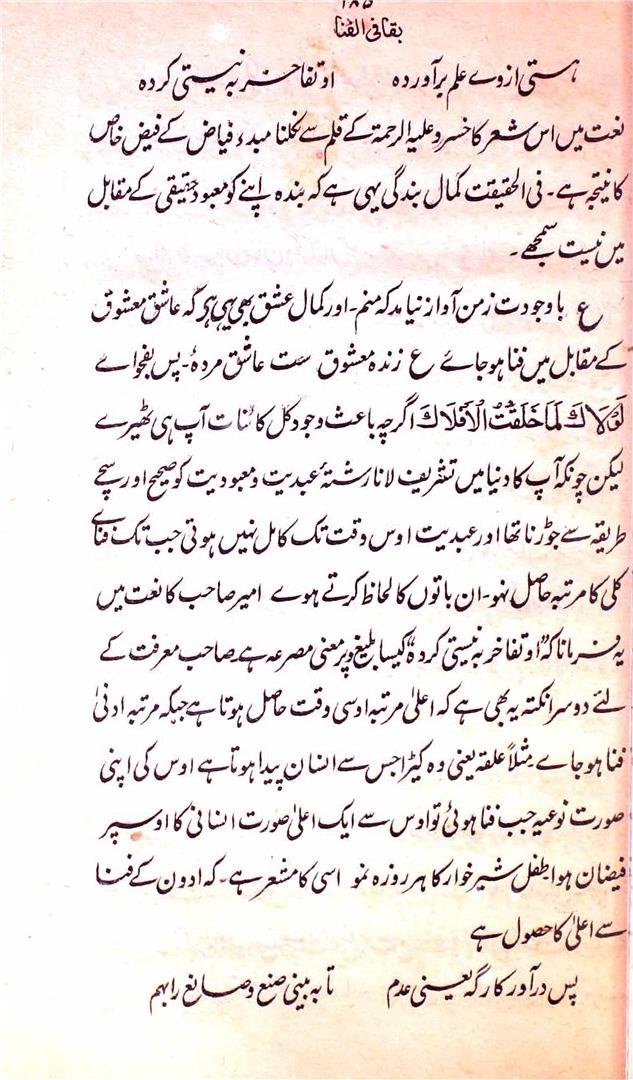 ۱۸۵
بقا فی الفنا
ہستی از وے علم برآوردہ اوتفاخر بہ نیستی کردہ
نعت میں اس شعر کا خسرو علیہ الرحمۃ کے قلم سے نکلنا مبدء فیاض کے فیض خاص
کا نتیجہ ہے۔ فی الحقیقت کمال بندگی یہی ہے کہ بندہ اپنے کو معبود حقیقی کے مقابل
میں نیست سمجھے۔
ع باوجودت زمن آواز نیامد کہ منم۔ اور کمال عشق بھی یہی ہے کہ عاشق معشوق
کے مقابل میں فنا ہو جائے ع زندہ معشوق ست عاشق مردۂ۔ پس بفحواے
لَوْلَاكَ لَمَا خَلَقْتُ الْاَفْلَاكَ اگرچہ باعث وجود کل کائنات آپ ہی ٹھیرے
لیکن چونکہ آپ کا دنیا میں تشریف لانا رشتۂ عبدیت و معبودیت کو صحیح اور سچے
طریقہ سے جوڑنا تھا اور عبدیت اوس وقت تک کامل نہیں ہوتی جب تک فناے
کلی کا مرتبہ حاصل نہو۔ ان باتوں کا لحاظ کرتے ہوے امیر صاحب کا نعت میں
یہ فرمانا کہ ”اوتفاخر بہ نیستی کردہ“ کیسا بلیغ و پر معنی مصرعہ ہے۔ صاحب معرفت کے
لئے دوسرا نکتہ یہ بھی ہے کہ اعلیٰ مرتبہ اوسی وقت حاصل ہوتا ہے جبکہ مرتبہ ادنیٰ
فنا ہو جاے مثلاً علقہ یعنی وہ کیڑا جس سے انسان پیدا ہوتا ہے اوس کی اپنی
صورت نوعیہ جب فنا ہوئی تو اوس سے ایک اعلیٰ صورت انسانی کا اوسپر
فیضان ہوا طفل شیر خوار کا ہر روزہ نمو اسی کا مشعر ہے۔ کہ ادون کے فنا
سے اعلیٰ کا حصول ہے
پس در آور کارگہ یعنی عدم تا بہ بینی صنع و صانع را بہم